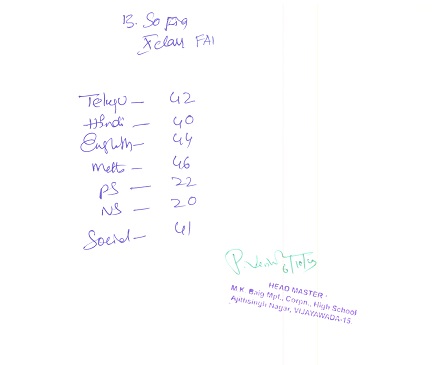 B. Sofia
X class FA1
Telugu — 42
Hindi — 40
English — 44
Maths — 46
PS — 22
NS — 20
Social — 41
P. 6/10/23
HEAD MASTER
M.K. Baig Mpl., Corpn., High School
Ajithsingh Nagar, VIJAYAWADA-15.